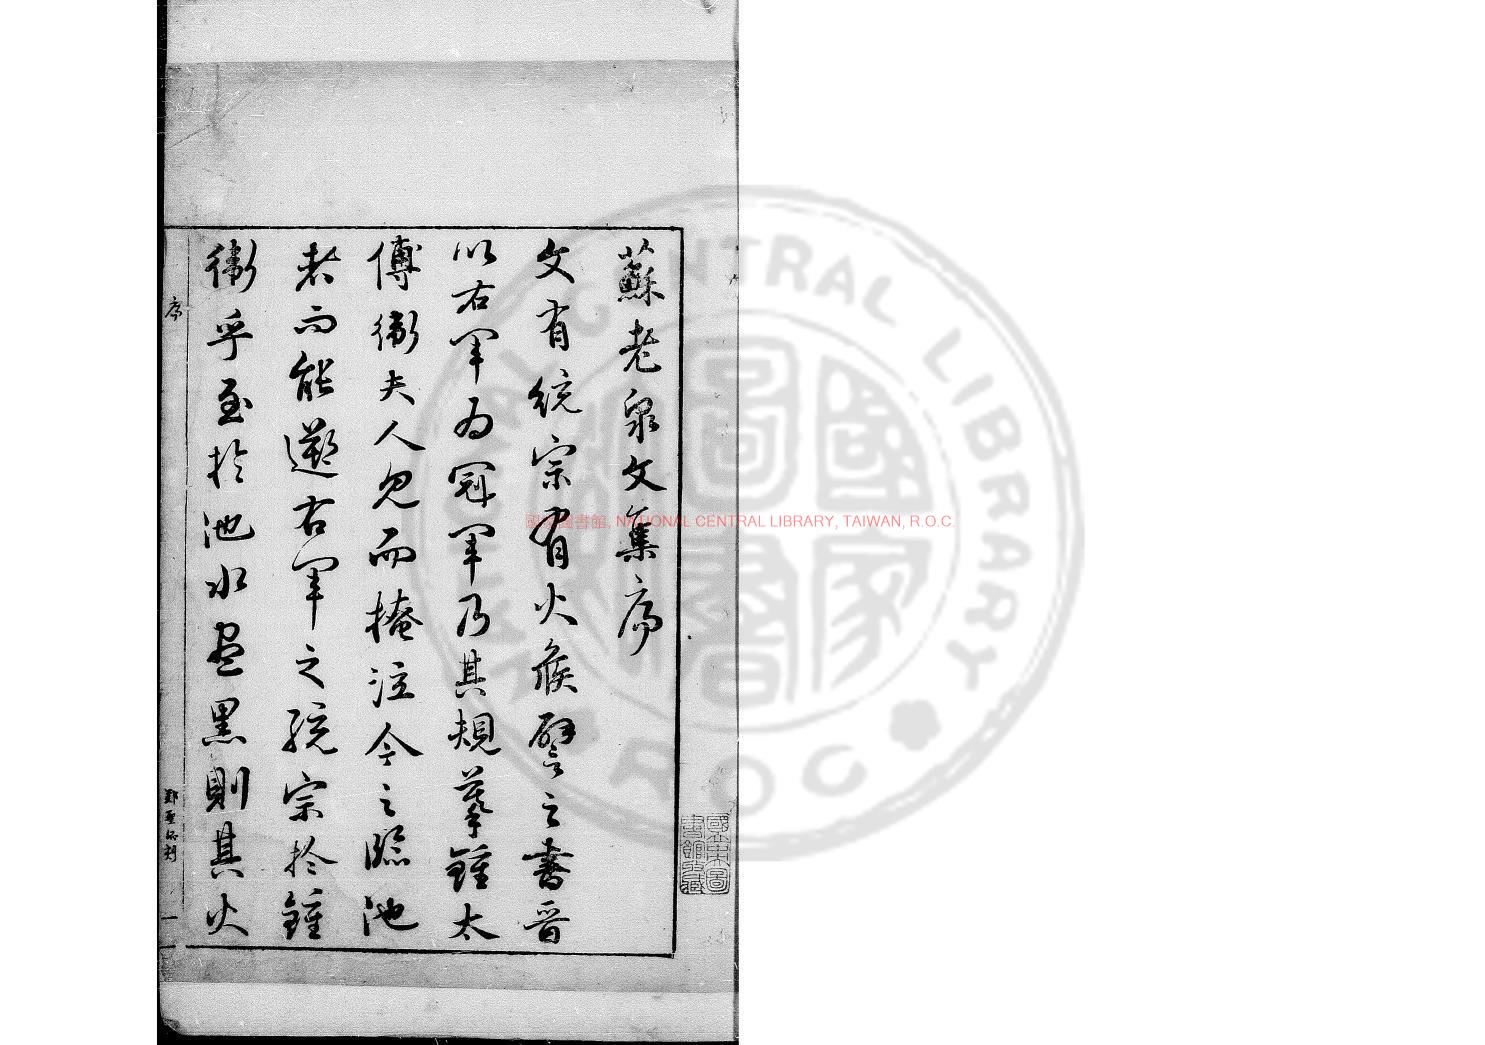 蘇老泉文集序
文有統宗有火候譬之書晉
以右軍為冠軍乃其規摹鍾太
傅衛夫人忽而掩注今之臨池
者而能遡右軍之統宗於鍾
衛乎至於池水盡黑則其火
序
一
國家圖書館, NATIONAL CENTRAL LIBRARY, TAIWAN, R.O.C.
NATIONAL CENTRAL LIBRARY TAIWAN R.O.C.
國家圖書
國立中央圖書館藏